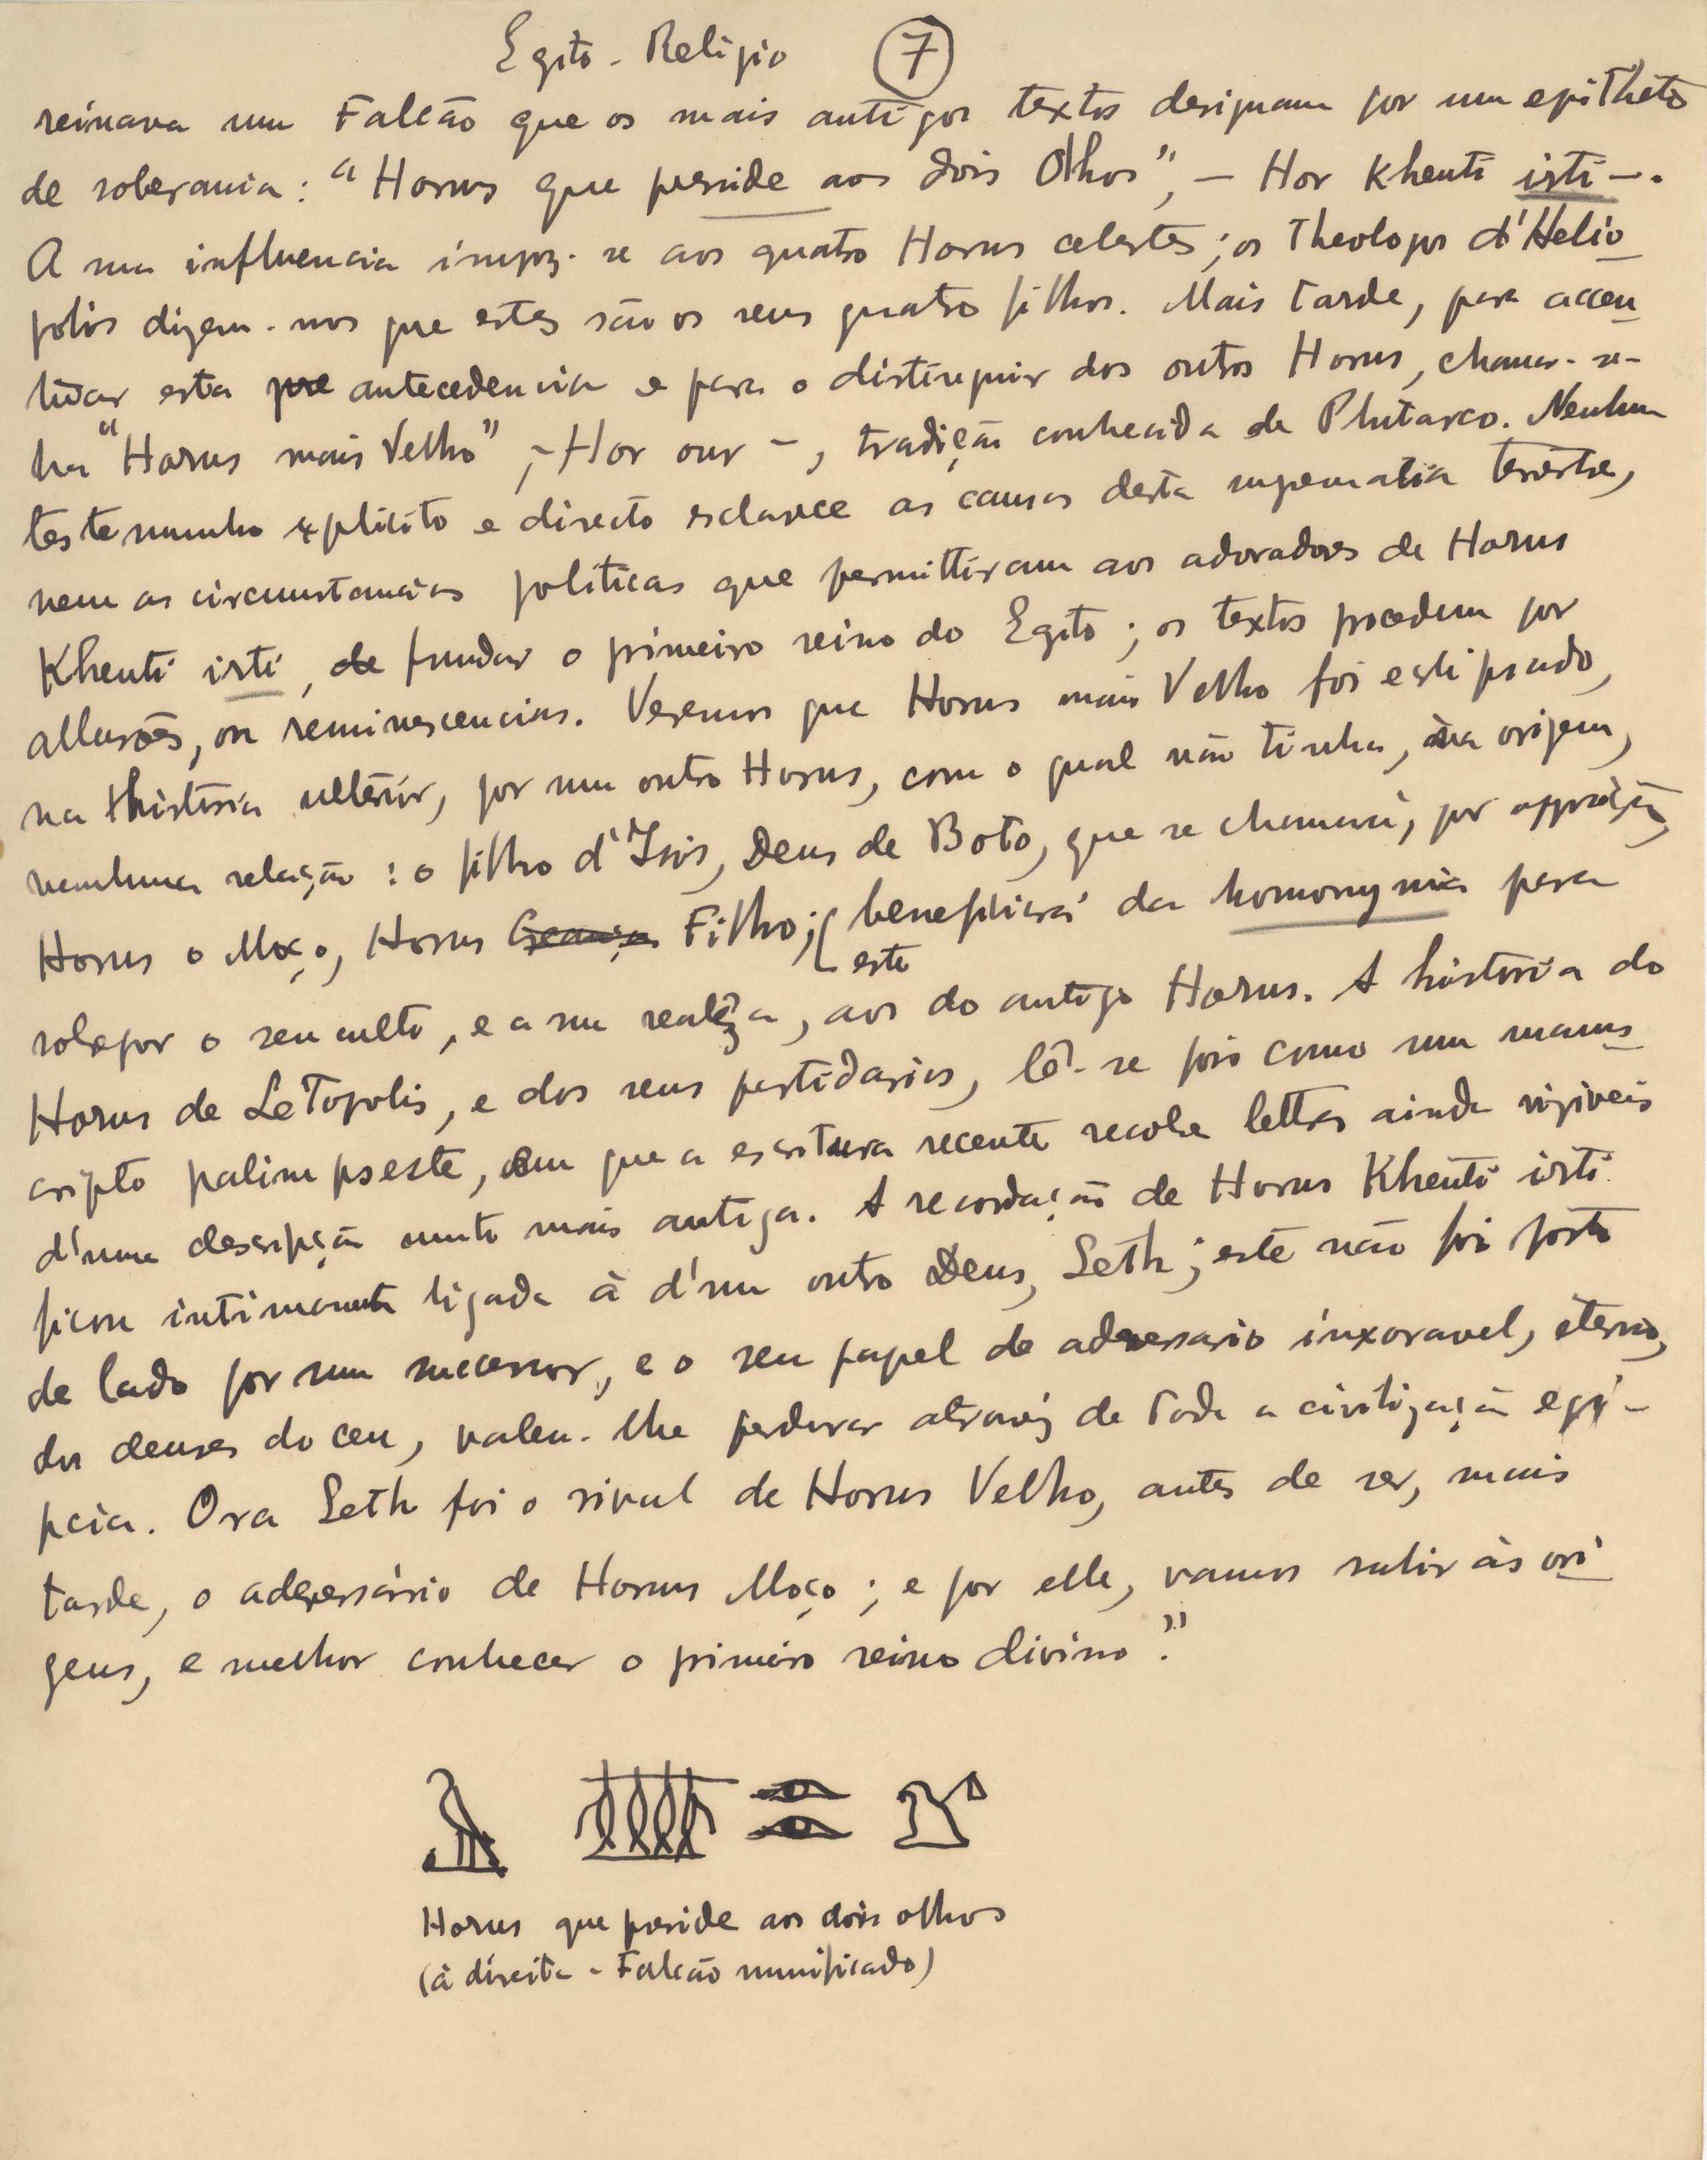 Egito - Religião 7
reinava um Falcão que os mais antigos textos designam por um epitheto
de soberania: "Horus que preside aos dois Olhos", - Hor Khenti irti -.
A sua influencia impoz-se aos quatro Horus celestes; os Theologos d'Helio
polis dizem-nos que estes são os seus quatro filhos. Mais tarde, para accen
tuar esta pre antecedencia e para o distinguir dos outros Horus, chamar-se-
ha "Horus mais Velho", - Hor our -, tradição conhecida de Plutarco. Nenhum
testemunho explicito e directo esclarece as causas desta supremacia terrestre,
nem as circunstancias politicas que permittiram aos adoradores de Horus
Khenti irti, de fundar o primeiro reino do Egito; os textos procedem por
allusões, ou reminescencias. Veremos que Horus mais Velho foi eclipsado,
na História ulterior, por um outro Horus, com o qual não tinha, na origem,
nenhuma relação: o filho d'Isis, Deus de Boto, que se chamará, por opposição,
Horus o Moço, Horus Creança Filho; beneficiará da homonymia para
este
sobrepor o seu culto, e a sua realeza, aos do antigo Horus. A história do
Horus de Letopolis, e dos seus partidarios, lê-se pois como um manus
cripto palimpseste, em que a escritura recente recobre lettras ainda visiveis
d'uma descripção muito mais antiga. A recordação de Horus Khenti irti
ficou intimamente ligada à d'um outro Deus, Seth; este não foi posto
de lado por um successor, e o seu papel de adversario inexoravel, eterno,
dos deuses do ceu, valeu-lhe perdurar atravéz de toda a civilização egy-
pcia. Ora Seth foi o rival de Horus Velho, antes de ser, mais
tarde, o adversário de Horus Moço; e por elle, vamos subir às ori
gens, e melhor conhecer o primeiro reino divino."
Horus que preside aos dois olhos
(à direita - Falcão mumificado)